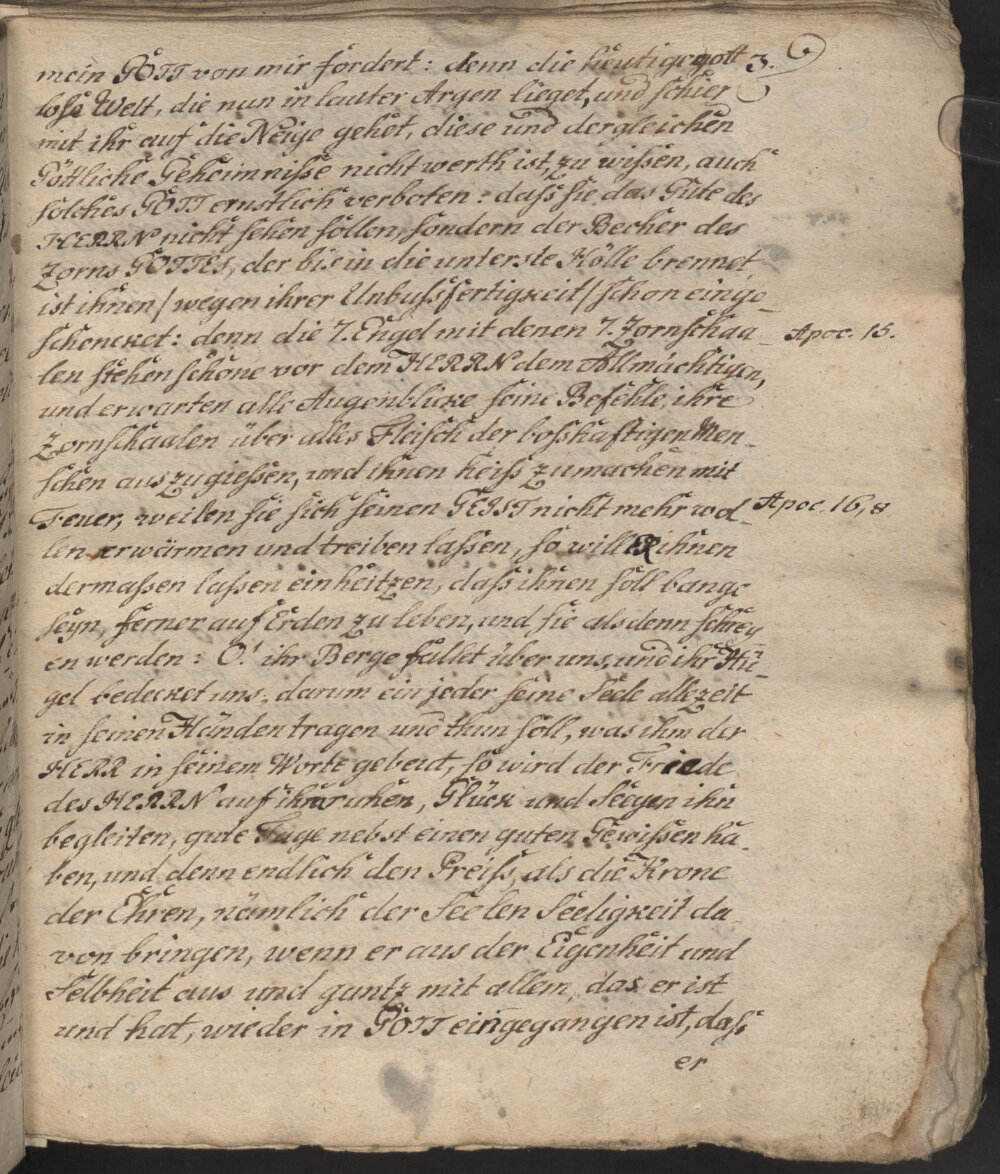 3.
mein GOTT von mir fordert: denn die heutige gott
lose Welt, die nun in lauter Argen lieget, und schier
mit ihr auf die Neige gehet, diese und dergleichen
Göttliche Geheimnisse nicht werth ist, zu wissen, auch
solches GOTT ernstlich verboten: dass sie das Gute des
HERRN nicht sehen sollen, sondern der Becher des
Zorns GOTTES, der bis in die unterste Hölle brennet,
ist ihnen / wegen ihrer Unbussfertigkeit / schon einge
schencket: denn die 7. Engel mit denen 7. Zornschaa-
Apoc. 15.
len stehen schone vor dem HERRN dem Allmächtigen,
und erwarten alle Augenblicke seine Befehle, ihre
Zornschaalen über alles Fleisch der bosshaftigen Men-
schen auszugiessen, und ihnen heiss zumachen mit
Feuer, weilen sie sich seinen GEIST nicht mehr wol-
Apoc. 16, 8.
len erwärmen und treiben lassen, so will ER ihnen
dermassen lassen einheitzen, dass ihnen soll bange
seyn, ferner auf Erden zu leben, und sie alsdenn schrey
en werden: O! ihr Berge fallet über uns, und ihr Hü-
gel bedecket uns, darum ein jeder seine Seele allezeit
in seinen Händen tragen und thun soll, was ihm der
HERR in seinem Worte gebeut, so wird der Friede
des HERRN auf ihm ruhen, Glück und Seegen ihn
begleiten, gute Tage nebst einen guten Gewissen ha-
ben, und denn endlich den Preiss, als die Krone
der Ehren, nämlich der Seelen Seeligkeit da
von bringen, wenn er aus der Eigenheit und
Selbheit aus und gantz mit allem, das er ist
und hat, wieder in GOTT eingegangen ist, dass
er